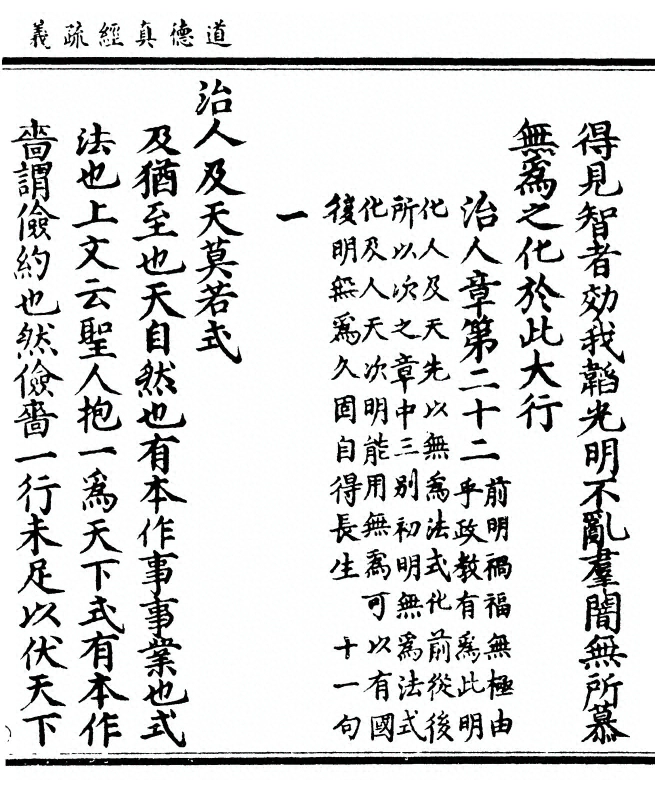 道德真經疏義
得見智者効我韜光明不亂羣闇無所慕
無為之化於此大行
治人章第二十二
前明禍福無極由
乎政教有為此明
化人及天先以無為法式化前從後
所以次之章中三別初明無為法式
化及人天次明能用無為可以有國
後明無為久固自得長生　十一句
一
治人及天莫若式
及猶至也天自然也有本作事事業也式
法也上文云聖人抱一為天下式有本作
嗇謂儉約也然儉嗇一行未足以伏天下